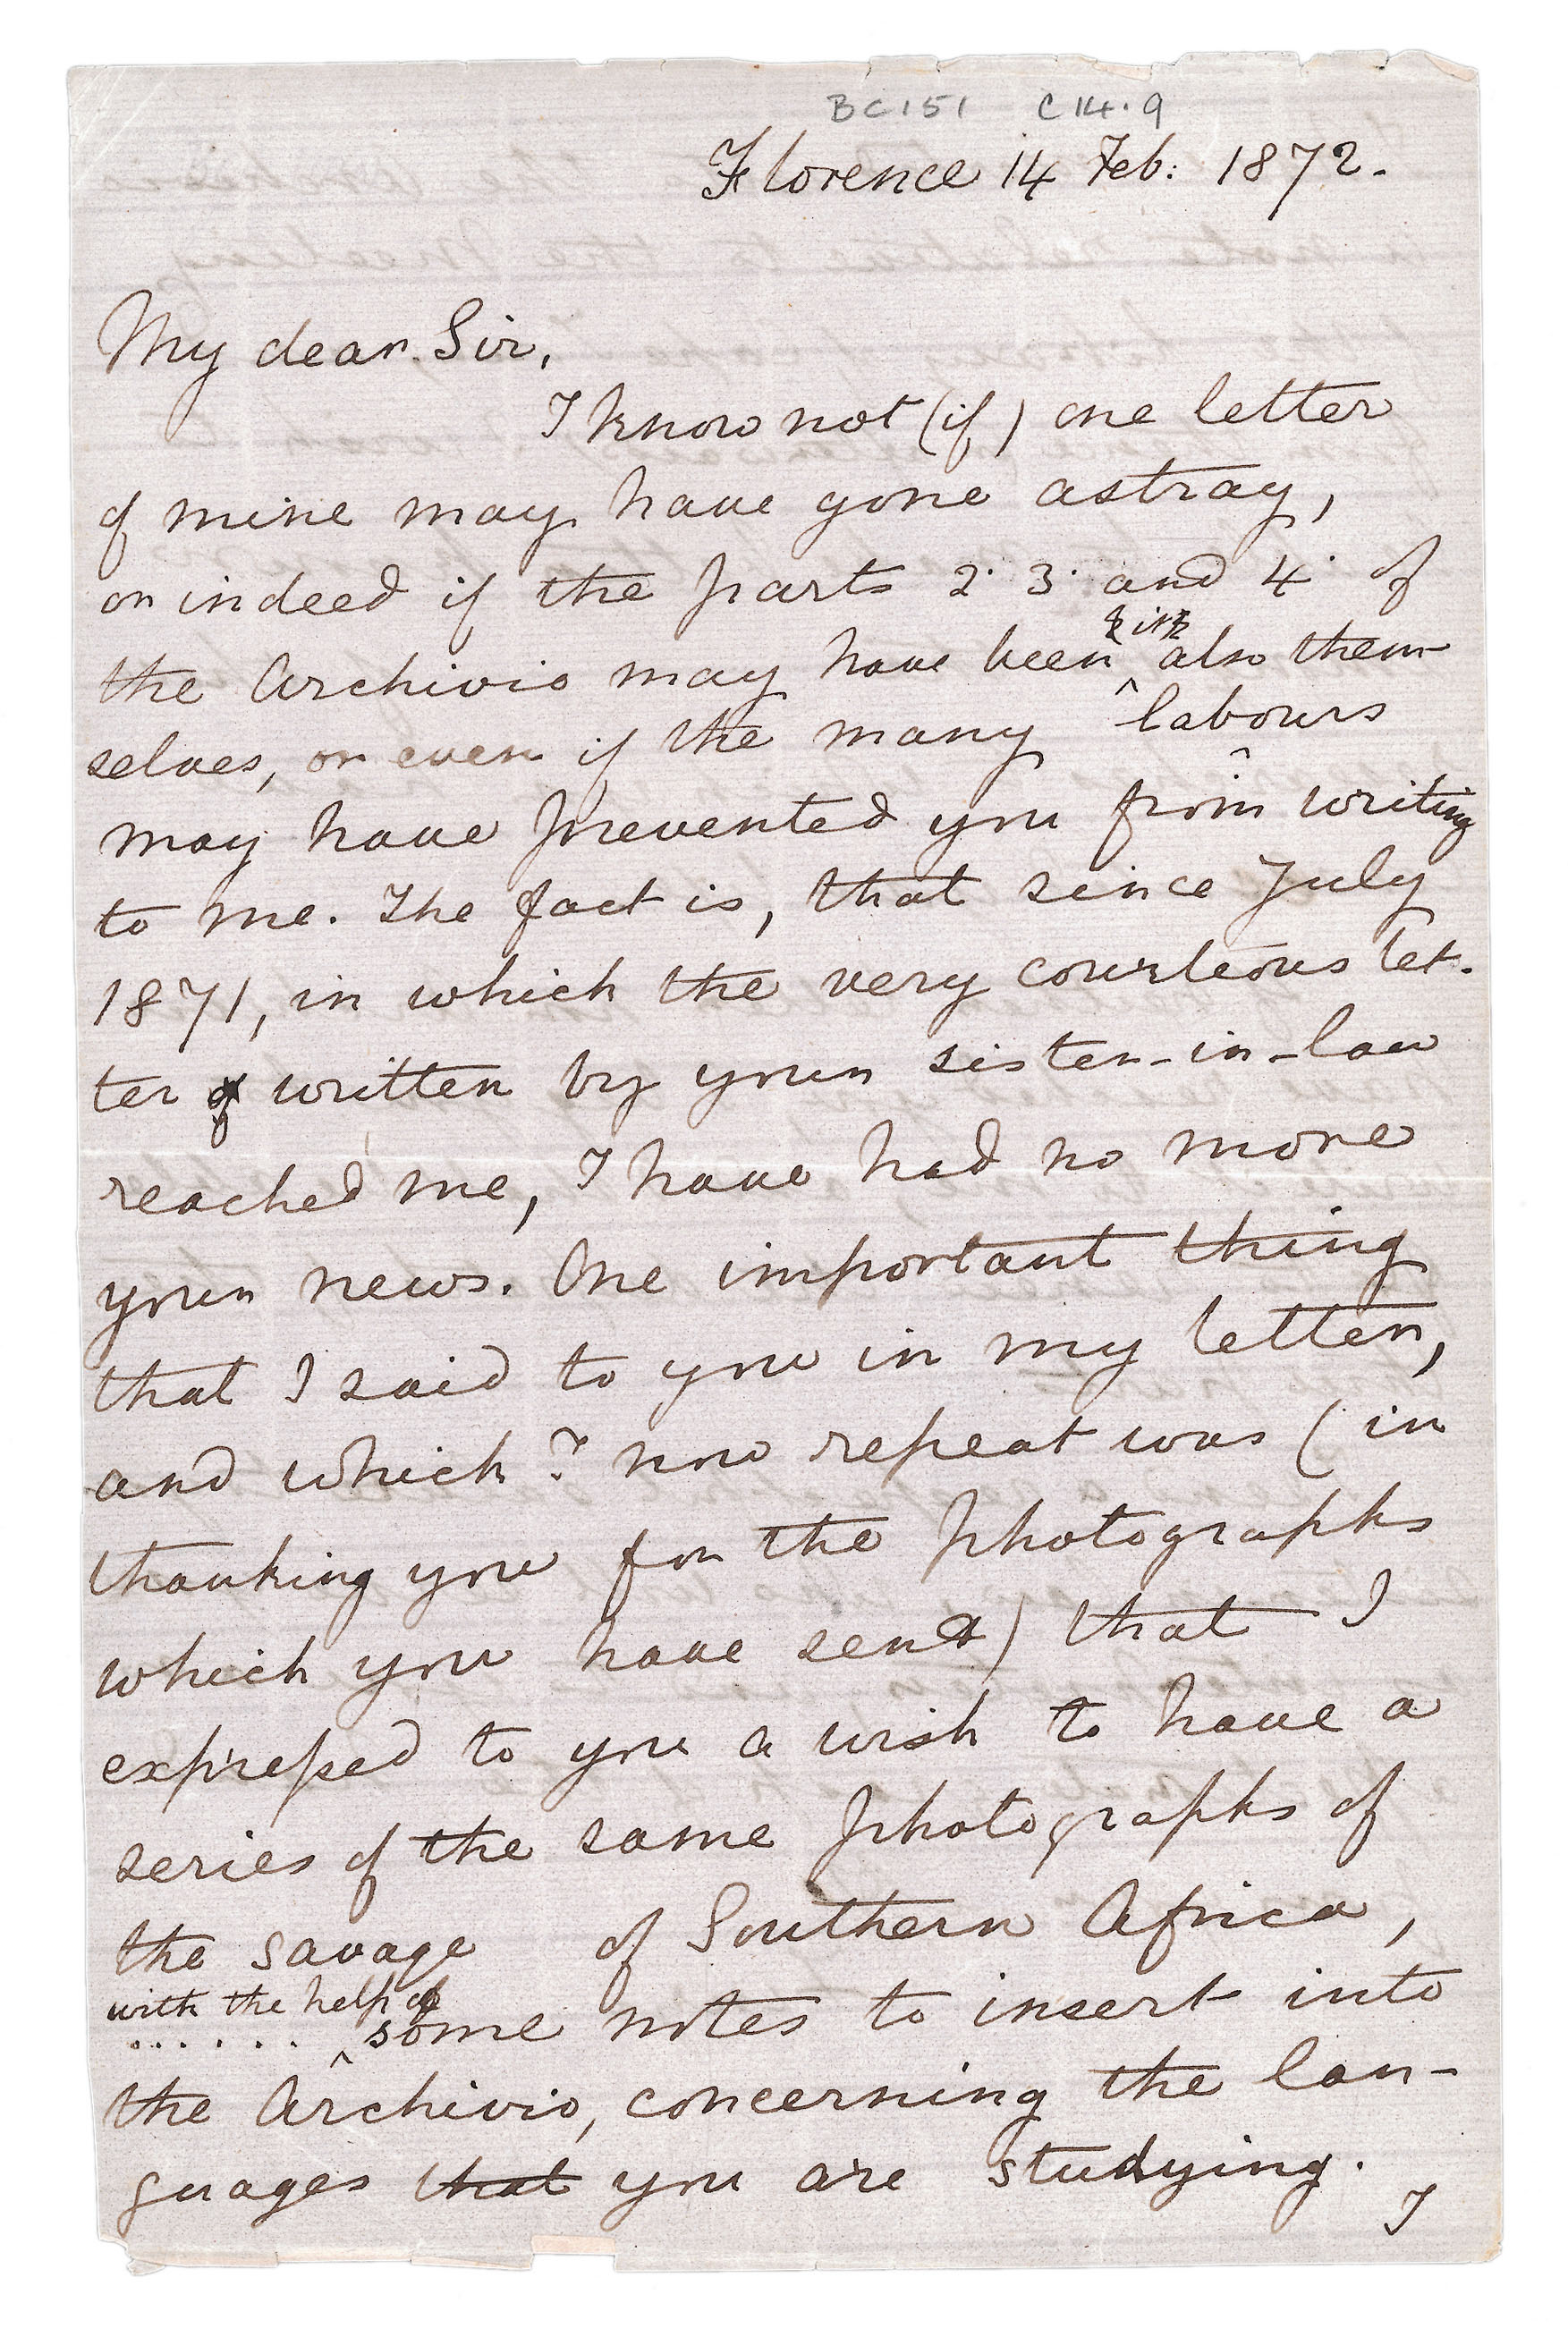 BC151 C14.9
Florence 14 Feb: 1872.
My dear Sir,
I know not (if) one letter
of mine may have gone astray,
or indeed if the parts 2. 3. and 4. of
the Archivio may have been also them-
selves, or even if the many labours
may have prevented you from writing
to me. The fact is, that since July
1871, in which the very courteous let-
ter written by your sister-in-law
reached me, I have had no more
your news. One important thing
that I said to you in my letter,
and which I now repeat was (in
thanking you for the photographs
which you have sent) that I
expressed to you a wish to have a
series of the same photographs of
the savage of Southern Africa,
with the help of
...... some notes to insert into
the Archivio, concerning the lan-
guages that you are studying.
I